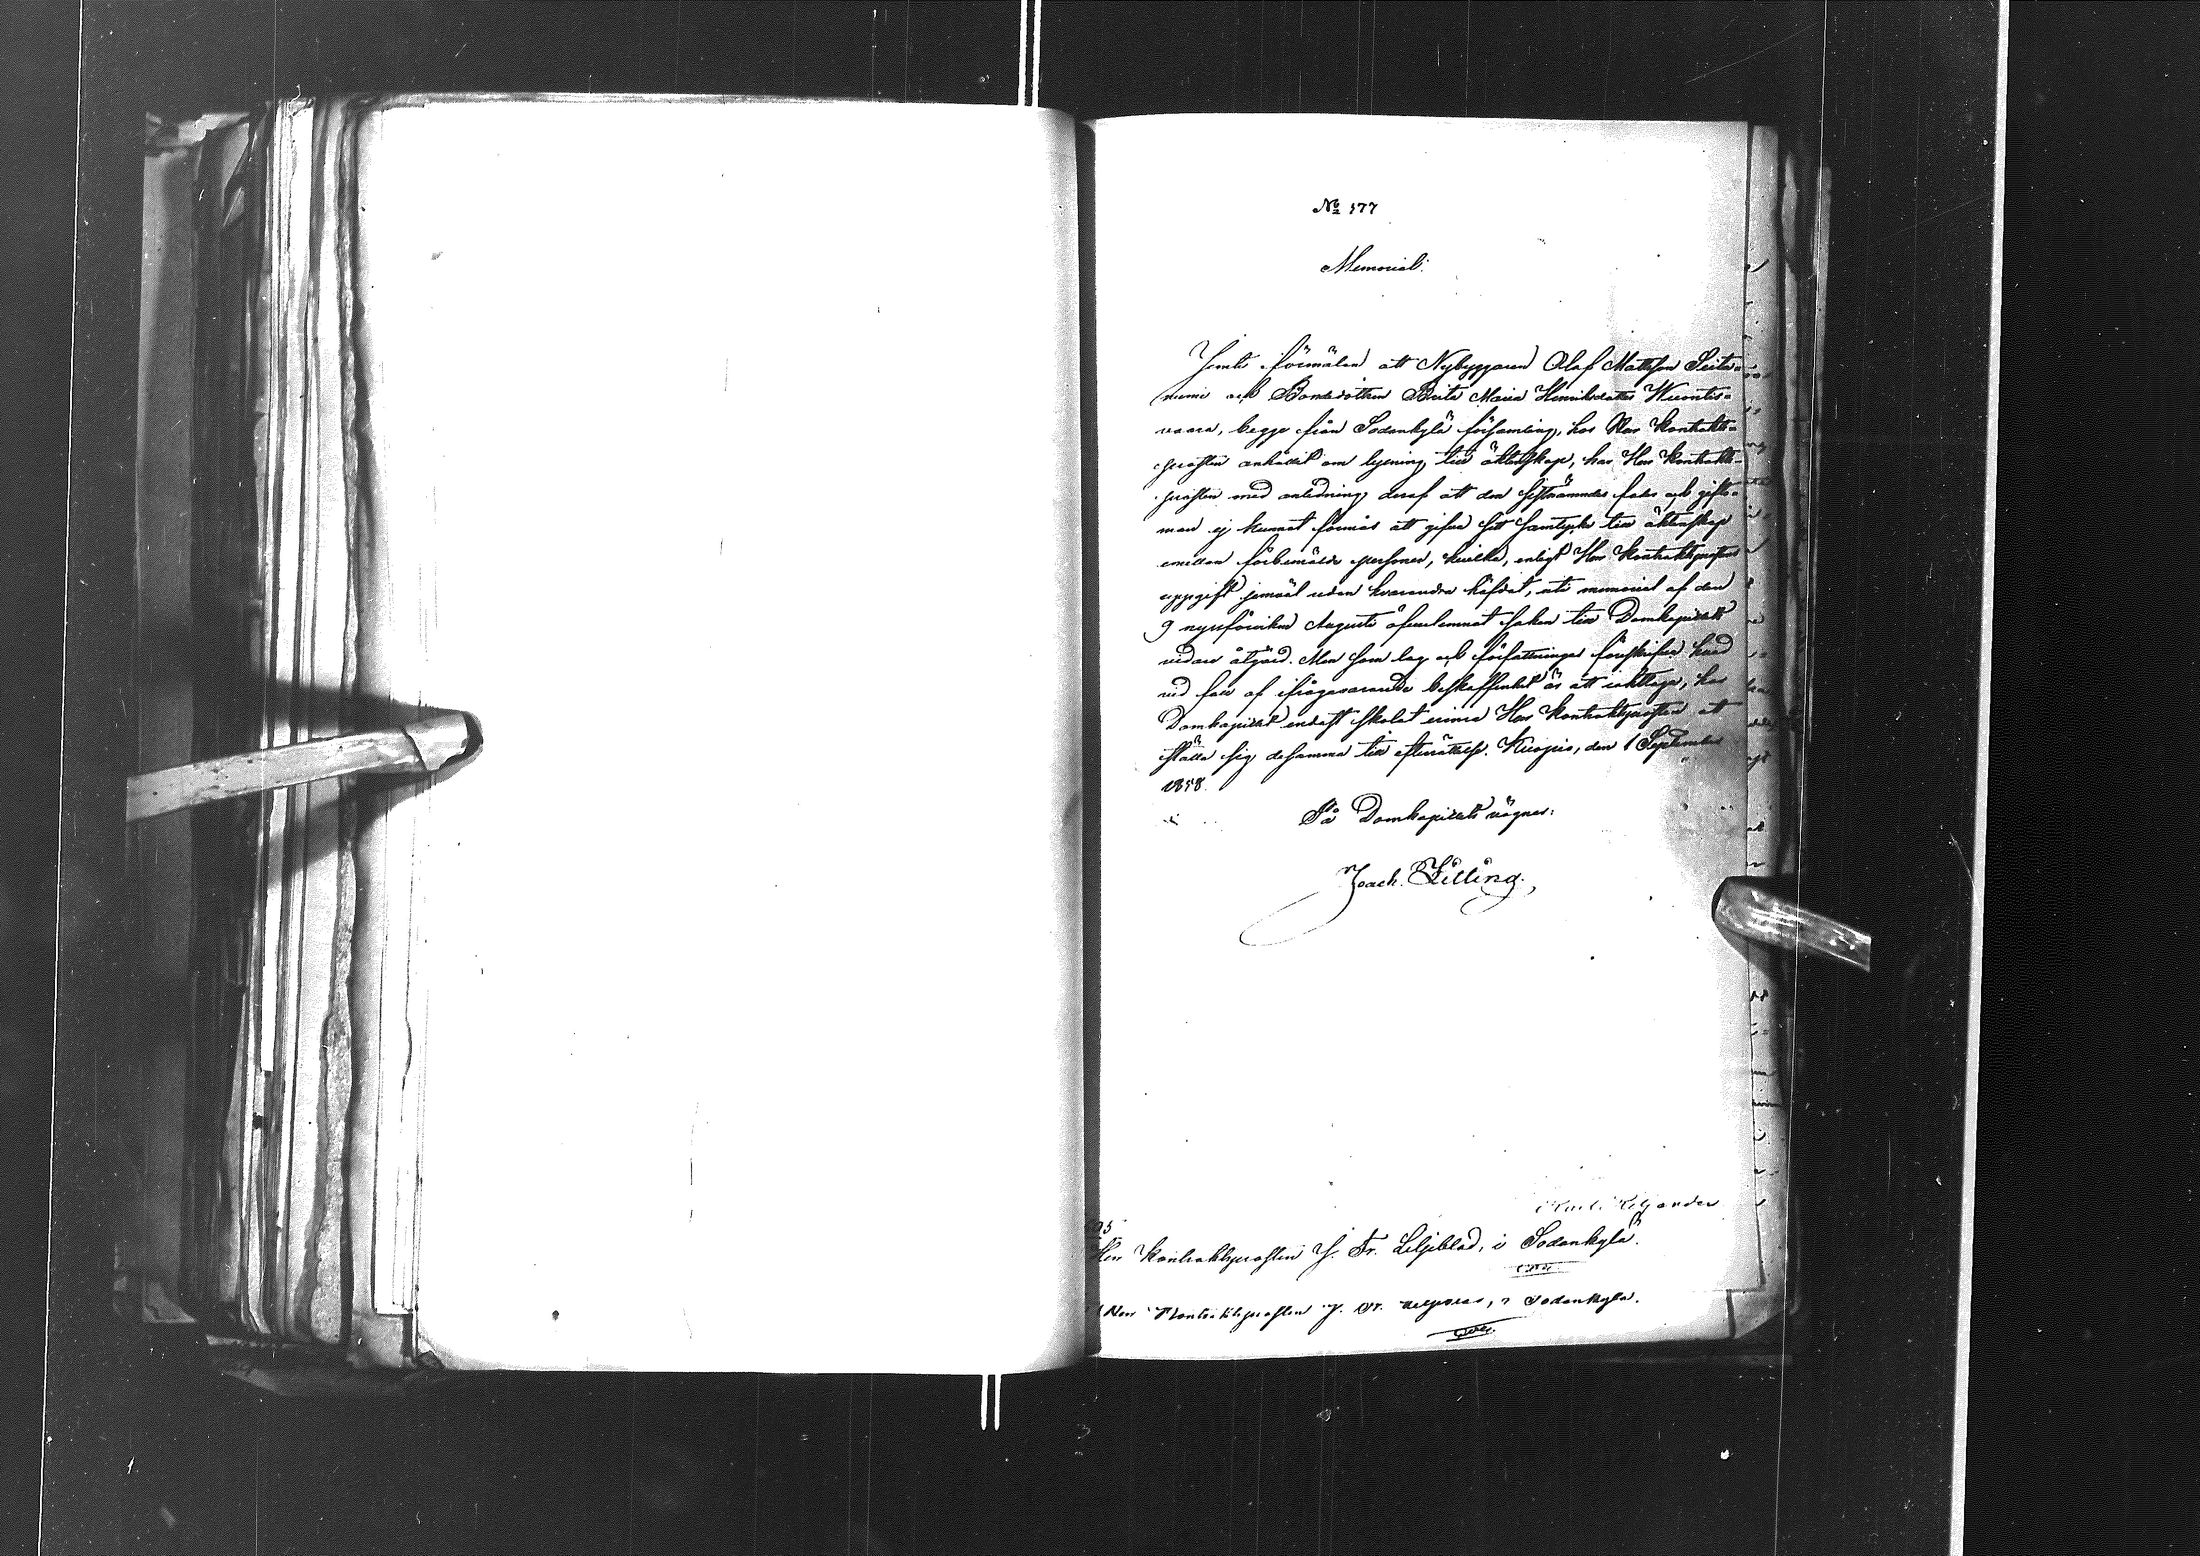 № 577
Memorial:
Jemte förmälan att Nybyggaren Olaf Mattsson Seita-
niemi och Bondedottren Brita Maria Henriksdotter Wuontis-
vaara, begge från Sodankylä församling, hos Herr Kontrakts-
prosten anhållit om lysning till äktenskap, har Herr Kontrakts-
prosten med anledning deraf att den sistnämndes fader och gifto-
man ej kunnat förmås att gifva sitt samtycke till äktenskap
emellan förbemälde personer, hvilka, enligt Herr Kontraktsprostens
uppgift jemväl redan hvarandra häfdat, uti memorial af den
9 nyssförvikne Augusti öfverlemnat saken till Domkapitlets
vidare åtgärd. Men som lag och författningar föreskrifva hvad
vid fall af ifrågavarande beskaffenhet är att iakttaga, har
Domkapitlet endast skolat erinra Herr Kontraktsprosten att
ställa sig desamma till efterrättelse. Kuopio, den 1 September
1858.
På Domkapitlets vägnar:
Joach. Zilling.
Karl Kiljander
Herr Kontraktsprosten J. Fr. Liljeblad, i Sodankylä.
Herr Kontraktsprosten J. Fr. i Sodankylä.